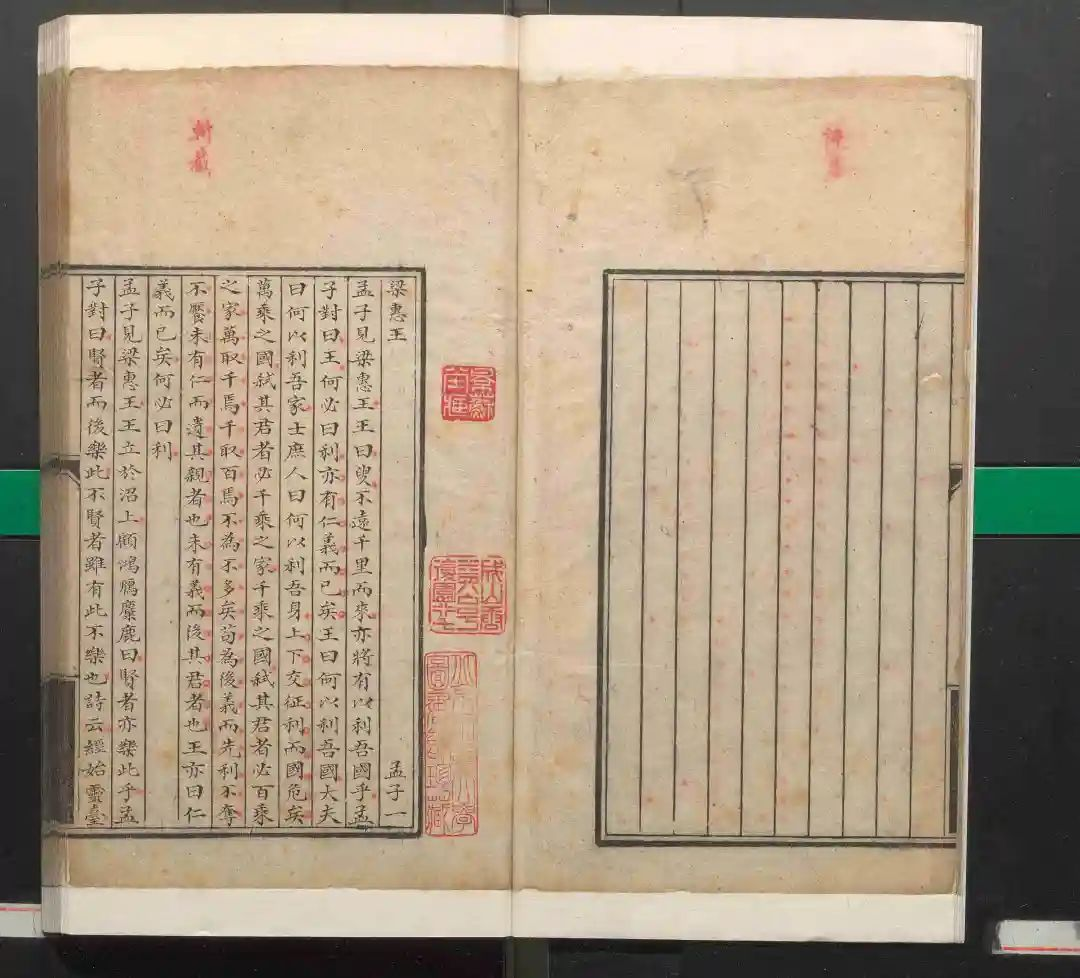 梁惠王　孟子一
孟子見梁惠王王曰叟不遠千里而來亦將有以利吾國乎孟
子對曰王何必曰利亦有仁義而已矣王曰何以利吾國大夫
曰何以利吾家士庶人曰何以利吾身上下交征利而國危矣
萬乘之國弒其君者必千乘之家千乘之國弒其君者必百乘
之家萬取千焉千取百焉不為不多矣苟為後義而先利不奪
不饜未有仁而遺其親者也未有義而後其君者也王亦曰仁
義而已矣何必曰利
孟子見梁惠王王立於沼上顧鴻鴈麋鹿曰賢者亦樂此乎孟
子對曰賢者而後樂此不賢者雖有此不樂也詩云經始靈臺